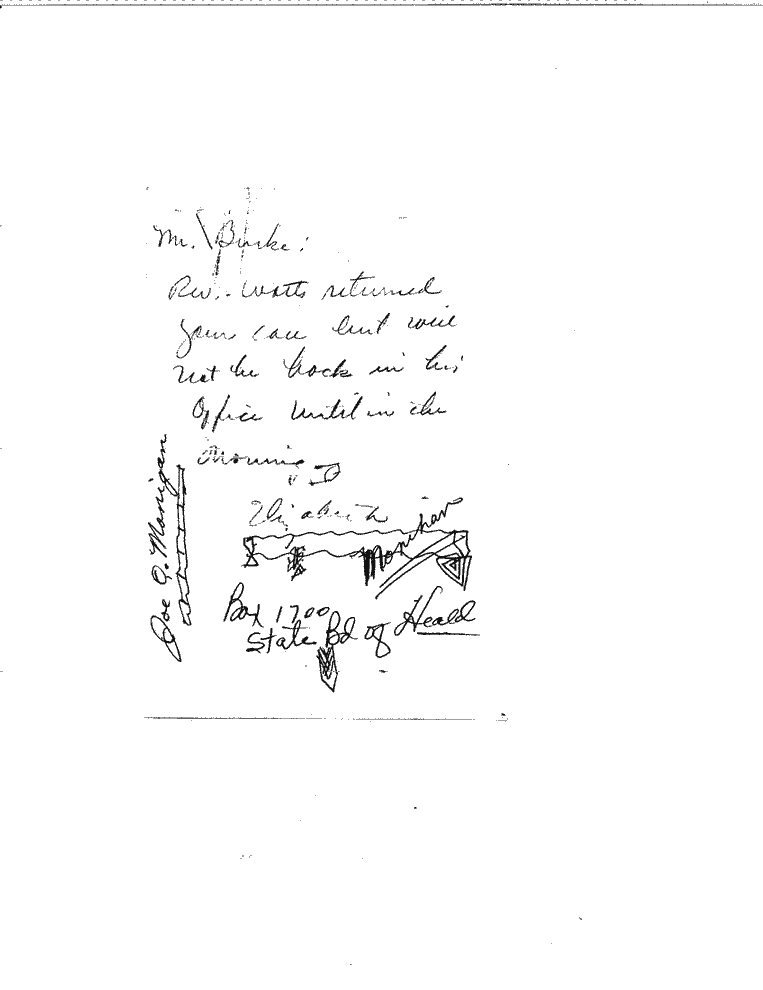 Mr. Burke:
Rev. Watts returned
your call but will
not be back in his
Office until in the
morning
Elizabeth
Monihan
Joe Q. Monigan
Box 1700
State Bd of Heald